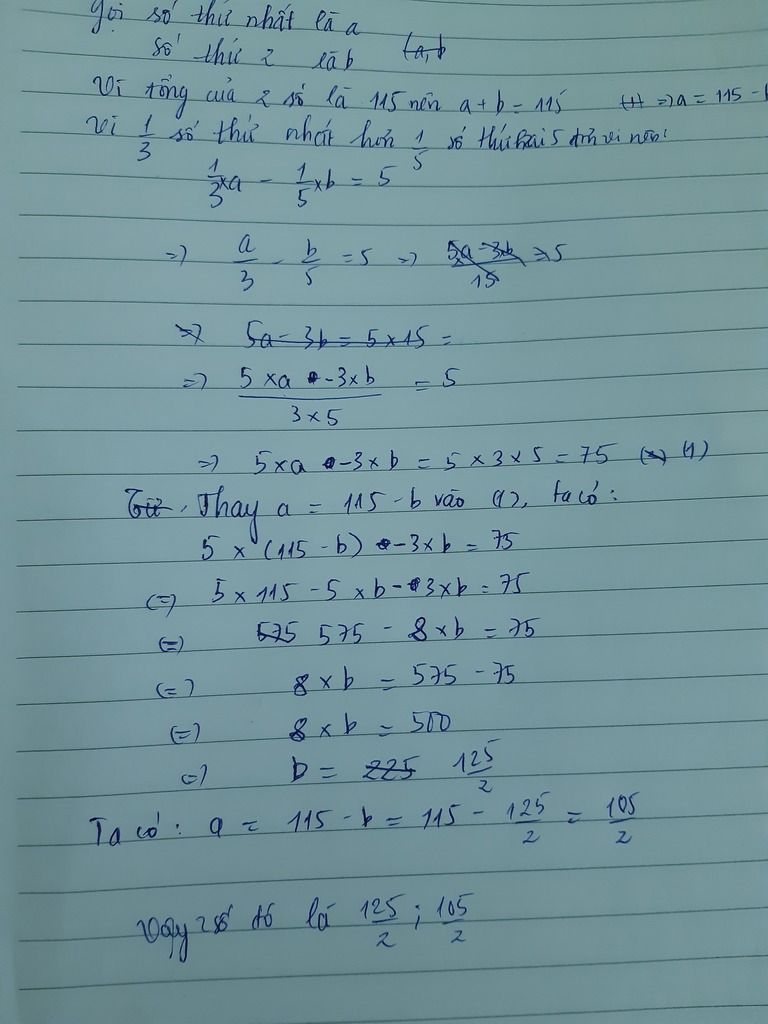 Gọi số thứ nhất là a
số thứ 2 là b (a, b
Vì tổng của 2 số là 115 nên a + b = 115 (1) => a = 115 - b
Vì 1/3 số thứ nhất hơn 1/5 số thứ hai 5 đơn vị nên:
1/3 x a - 1/5 x b = 5
=> a/3 - b/5 = 5 => 5a - 3b/15 = 5
=> 5a - 3b = 5 x 15 =
=> 5 x a - 3 x b / 3 x 5 = 5
=> 5 x a - 3 x b = 5 x 3 x 5 = 75 (x) (1)
Từ, Thay a = 115 - b vào (1), ta có:
5 x (115 - b) - 3 x b = 75
(=) 5 x 115 - 5 x b - 3 x b = 75
(=) 575 575 - 8 x b = 75
(=) 8 x b = 575 - 75
(=) 8 x b = 500
=) b = 225 125/2
Ta có: a = 115 - b = 115 - 125/2 = 105/2
Vậy 2 số đó là 125/2 ; 105/2